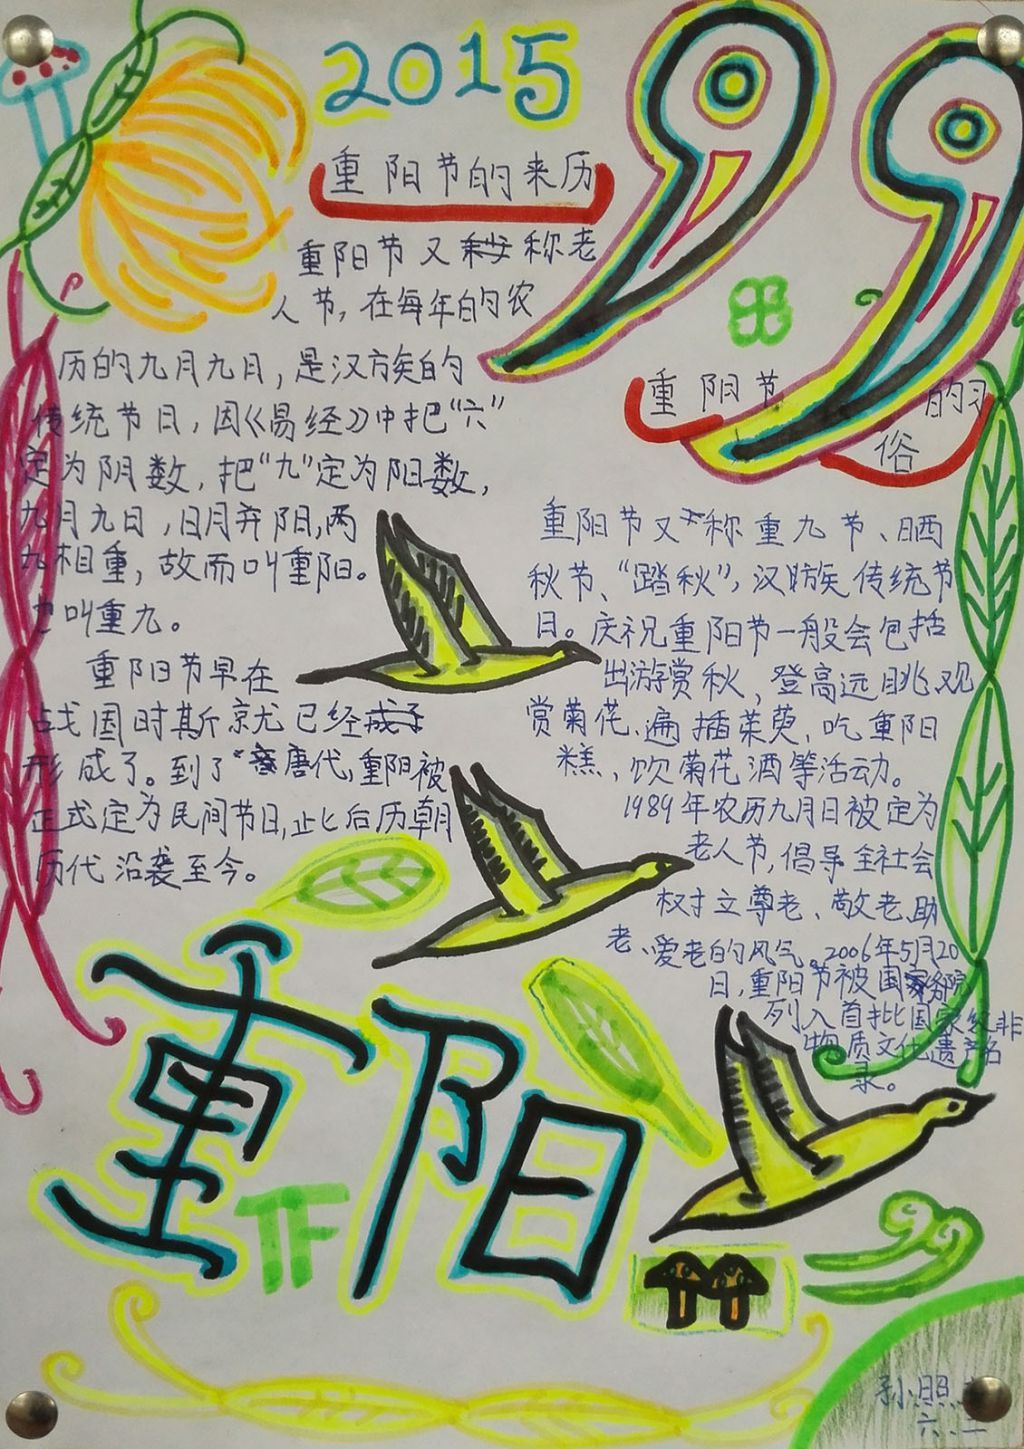 2015
99
重阳节的来历
重阳节又称老
人节,在每年的农
历的九月九日,是汉族的
传统节日,因《易经》中把“六”
定为阴数,把“九”定为阳数,
九月九日,日月弃阳,两
九相重,故而叫重阳。
也叫重九。
重阳节早在
战国时斯就已经
形成了。到了唐代,重阳被
正式定为民间节日,止匕后历朝
历代沿袭至今。
重阳节的习
俗
重阳节又称重九节、晒
秋节、“踏秋”,汉族传统节
日。庆祝重阳节一般会包括
出游赏秋,登高远眺,观
赏菊花、遍插茱萸,吃重阳
糕,饮菊花酒等活动。
1989年农历九月日被定为
老人节,倡导全社会
树立尊老、敬老、助
老、爱老的风气。2006年5月20
日,重阳节被国务院
列入首批国家级非
物质文化遗产名
录。
重阳
TF
孙照
六、二